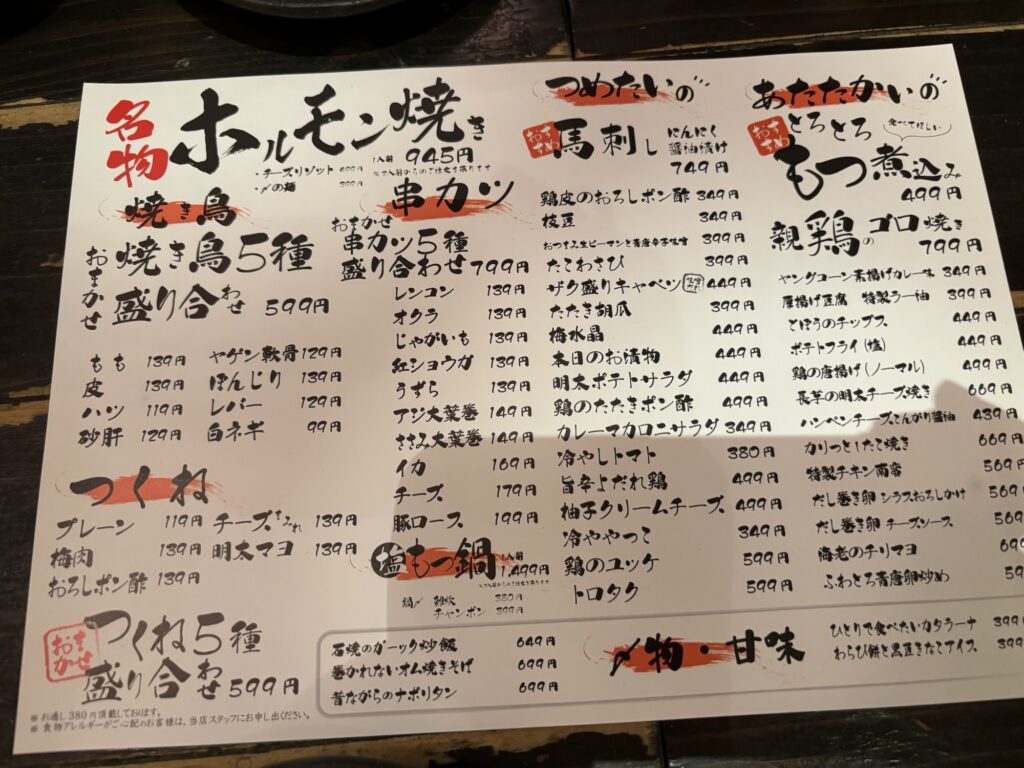 名物 ホルモン焼き
1人前 945円
※2人前からのご注文を承ります
・チーズリゾット 499円
・〆の麺 399円
焼き鳥
おまかせ 焼き鳥5種
盛り合わせ 599円
もも 139円
皮 139円
ハツ 119円
砂肝 129円
ヤゲン軟骨 129円
ぼんじり 139円
レバー 129円
白ネギ 99円
つくね
プレーン 119円
梅肉 139円
おろしポン酢 139円
チーズまみれ 139円
明太マヨ 139円
おまかせ
つくね5種
盛り合わせ 599円
※ お通し380円頂戴しております。
※ 食物アレルギーがご心配のお客様は、当店スタッフにお申し出ください。
串カツ
おまかせ
串カツ5種
盛り合わせ 799円
レンコン 139円
オクラ 139円
じゃがいも 139円
紅ショウガ 139円
うずら 139円
アジ大葉巻 149円
ささみ大葉巻 149円
イカ 169円
チーズ 179円
豚ロース 199円
塩もつ鍋 1人前 1,499円
※2人前からのご注文を承ります
鍋〆 雑炊 380円
チャンポン 399円
つめたいの
おすすめ 馬刺し にんにく醤油漬け
749円
鶏皮のおろしポン酢 349円
枝豆 349円
おつまみ生ピーマンと青唐辛子味噌 399円
たこわさび 399円
ザク盛りキャベツ 449円
たたき胡瓜 399円
梅水晶 449円
本日のお漬物 449円
明太ポテトサラダ 449円
鶏のたたきポン酢 449円
カレーマカロニサラダ 349円
冷やしトマト 380円
旨辛よだれ鶏 499円
柚子クリームチーズ 499円
冷ややっこ 449円
鶏のユッケ 599円
トロタク 599円
あたたかいの
おすすめ とろとろ 食べてほしい
もつ煮込み
499円
親鶏のゴロ焼き
799円
ヤングコーン素揚げカレー味 349円
厚揚げ豆腐 特製ラー油 399円
ごぼうのチップス 449円
ポテトフライ(塩) 449円
鶏の唐揚げ(ノーマル) 499円
長芋の明太チーズ焼き 669円
ハンペンチーズこんがり醤油 439円
かりっと!たこ焼き 669円
特製チキン南蛮 569円
だし巻き卵 シラスおろしかけ 569
だし巻き卵 チーズソース 569
海老のチリマヨ 699
ふわとろ青唐卵炒め 59
〆物・甘味
石焼のガーリック炒飯 649円
巻かれないオム焼きそば 699円
昔ながらのナポリタン 699円
ひとりで食べたいカタラーナ 399
わらび餅と黒豆きなこアイス 399